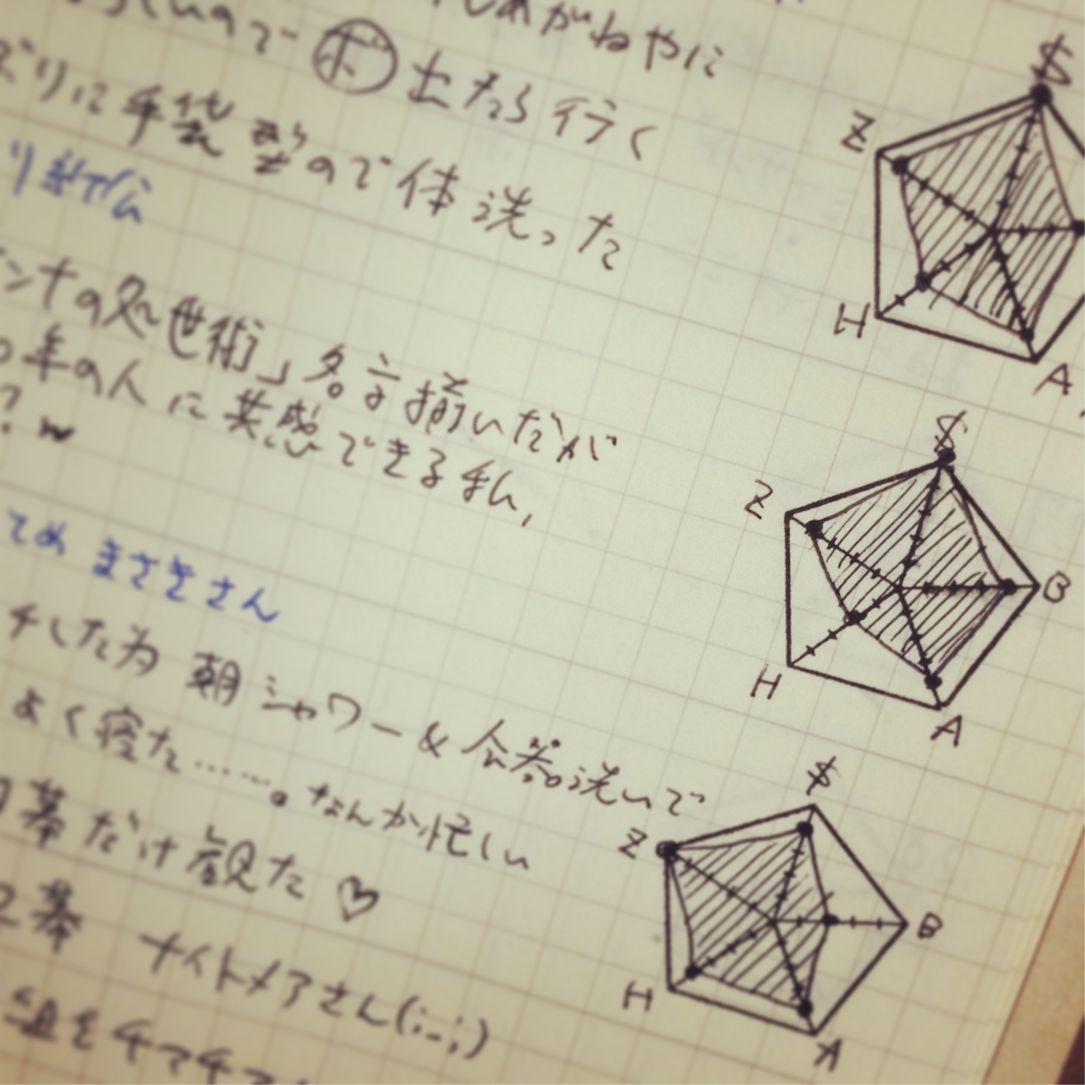 めがねやに
ので ㋭ 土たら行く
ぶりに手袋型ので体洗った
ンナの処世術」名言揃いだが
年の人に共感できる私、
?w
てめ まさきさん
チした為 朝シャワー&会器洗いで
よく寝た……。なんか忙しい
幕だけ観た♡
2幕 ナイトメアさん(;-;)
組をチマチマ
$
Z
H
A
$
Z
B
H
A
$
Z
B
H
A